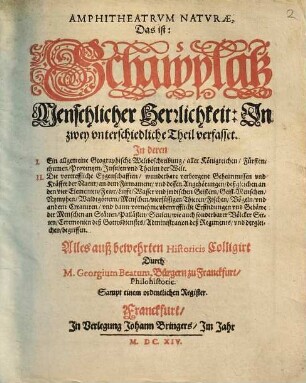 AMPHITHEATRVM NATVRÆ,
Das ist:
Schawplatz
Menschlicher Herrlichkeit: In
zwey vnterschiedliche Theil verfasset.
In deren
I. Ein allgemeine Geographische Weltbeschreibung / aller Königreichen / Fürsten-
thumen / Provintzen, Insulen vnd Theilen der Welt.
II. Die vortreffliche Eigenschafften / wunderbare verborgene Geheimnussen vnd
Kräffte der Natur / an dem Firmament / vnd dessen Angehörungen / deßgleichen an
den vier Elementen / Feur / Lufft / Wasser vnd irrdischen Geistern,
Nymphen / Waldgöttern / Menschen / vierfüssigen Thieren / Fischen / Vögeln / vnd
andern Creaturen / vnd dann vornemme
der Menschen an Pallästen / wie auch sonderbare Völcker Sit-
ten / Ceremonien des Gottesdienstes / Administration deß Regiments / vnd derglei-
chen / begriffen.
Alles auß bewehrten Historicis Colligirt
Durch
M. Georgium Beatum, Bürgern zu Franckfurt /
Philohistoric.
Sampt einem ordentlichen Register.
Franckfurt /
In Verlegung Johann Bringers / Im Jahr
M. DC. XIV.